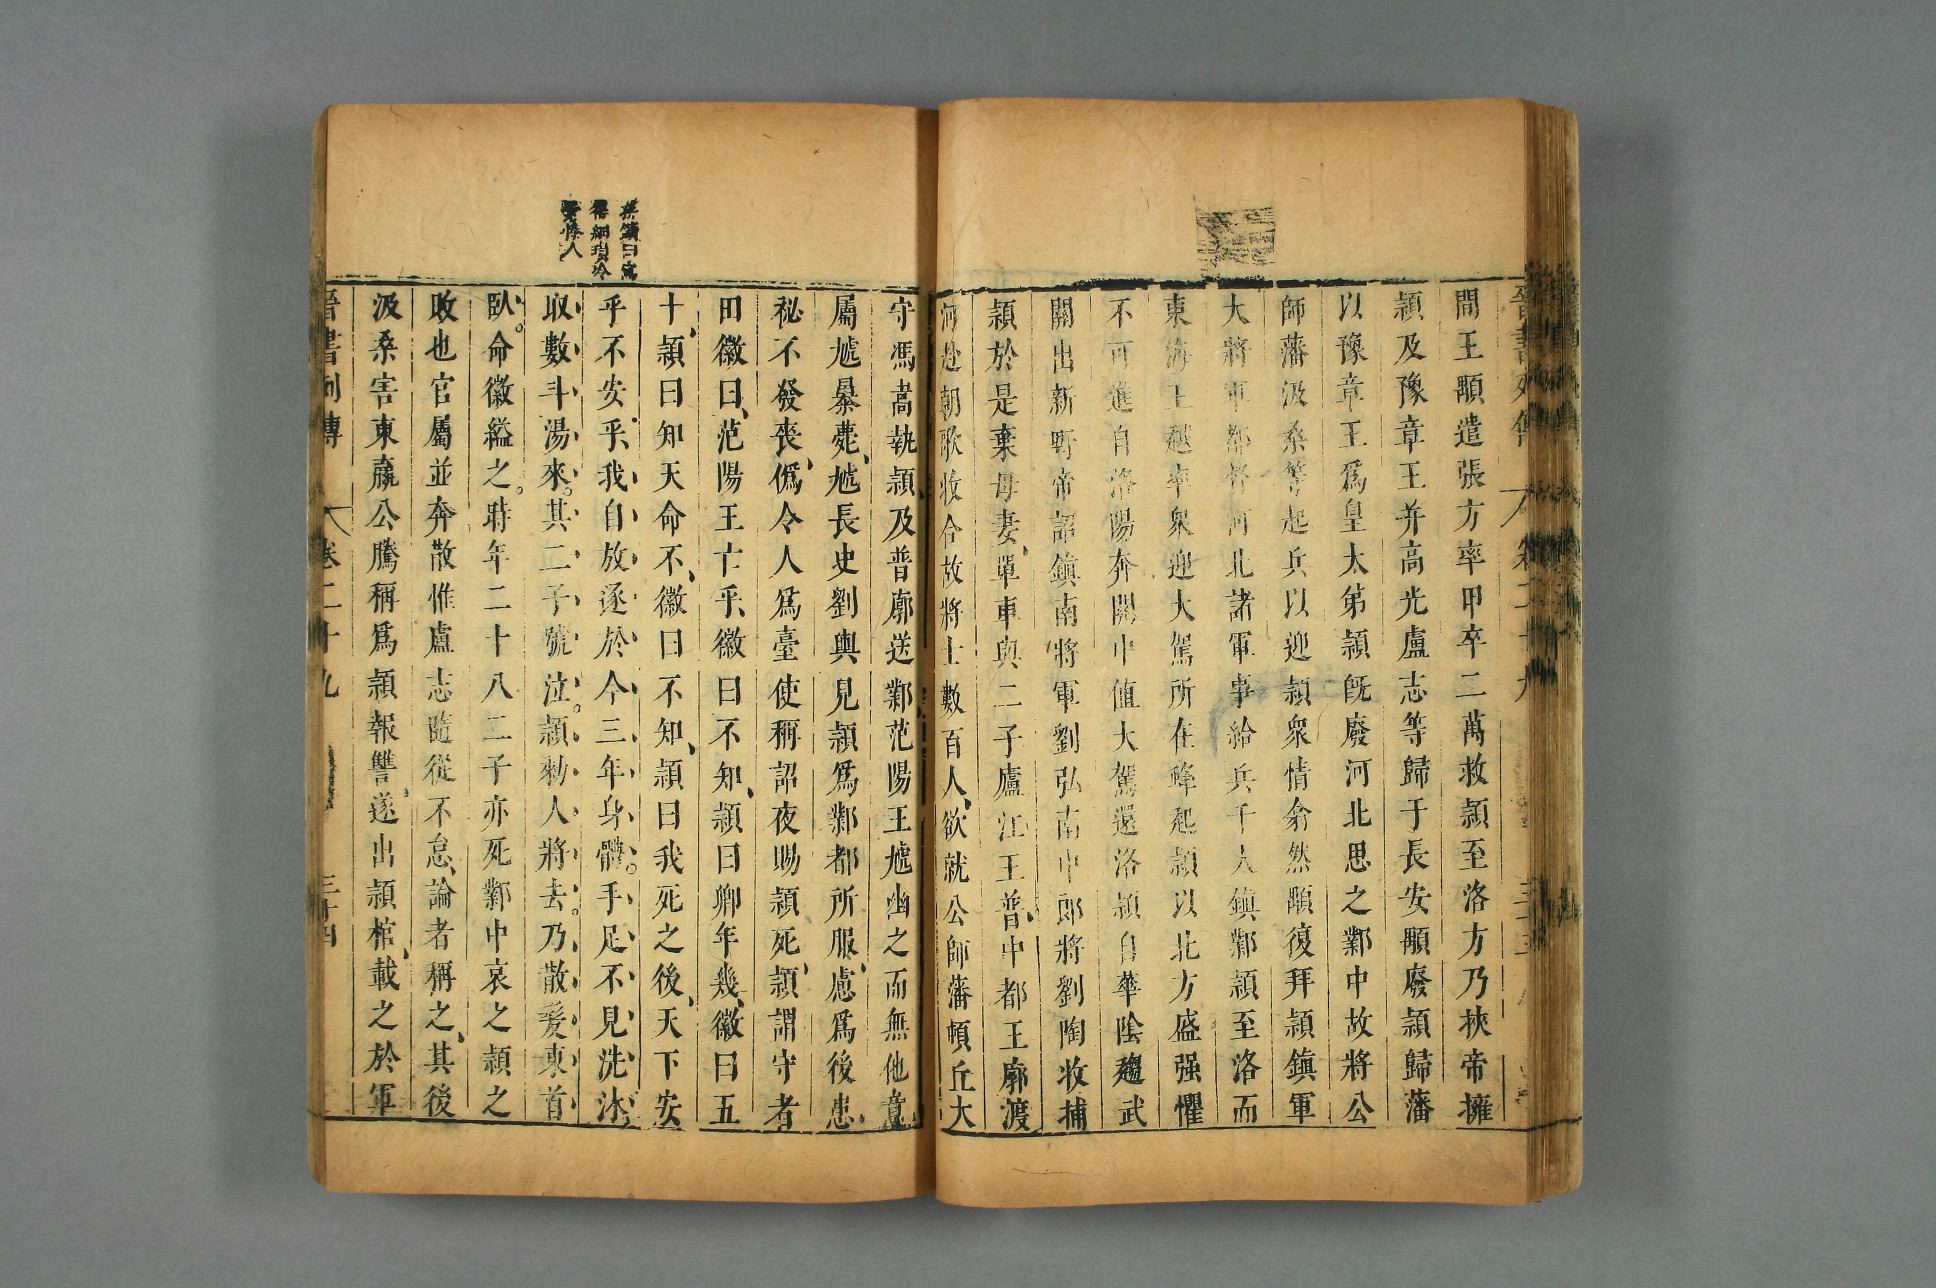 間王顒遣張方率甲卒二萬救頴至洛方乃挾帝擁
頴及豫章王并高光盧志等歸于長安顒廢頴歸藩
以豫章王爲皇太弟頴旣廢河北思之鄴中故將公
師藩汲桑等起兵以迎頴衆情翕然顒復拜頴鎮軍
大將軍都督河北諸軍事給兵千人鎮鄴頴至洛而
東海王越率衆迎大駕所在蜂起頴以北方盛强懼
不可進自洛陽奔關中值大駕還洛頴自華陰趨武
關出新野帝詔鎮南將軍劉弘南中郎將劉陶收捕
頴於是棄母妻、單車與二子廬江王普、中都王廓渡
河赴朝歌收合故將士數百人、欲就公師藩頓丘大
守馮嵩執頴及普廓送鄴范陽王虓幽之而無他意
屬虓暴薨、虓長史劉輿見頴爲鄴都所服、慮爲後患、
秘不發喪、僞令人爲臺使稱詔夜賜頴死、頴謂守者
田徽曰、范陽王亡乎、徽曰不知、頴曰卿年幾、徽曰五
十、頴曰知天命不、徽曰不知、頴曰我死之後、天下安
乎不安乎、我自放逐於今三年身體。手足不見洗沐、
取數斗湯來。其二子號泣。頴勑人將去。乃散髮東首
臥。命徽縊之。時年二十八二子亦死鄴中哀之頴之
敗也官屬並奔散惟盧志隨從不怠、論者稱之、其後
汲桑害東嬴公騰稱爲頴報讐、遂出頴棺、載之於軍
晉書列傳 卷二十九 三十四